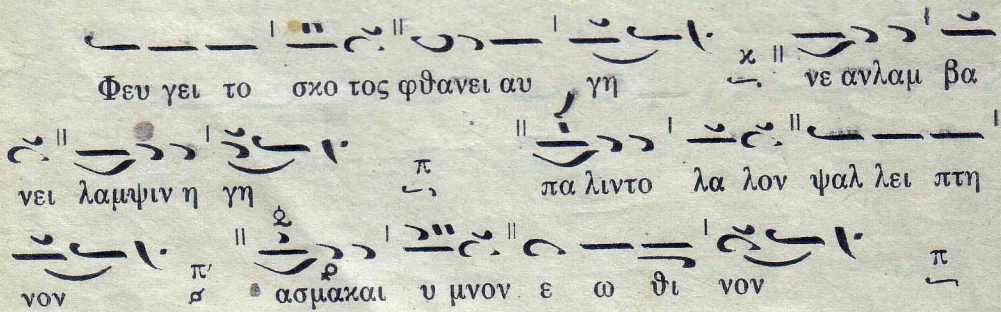 Φευ γει το σκο τος φθανει αυ γη κ νε ανλαμ βα
νει λαμψιν η γη π πα λιντο λα λον ψαλ λει πτη
νον π' ασμακαι υ μνον ε ω θι νον π